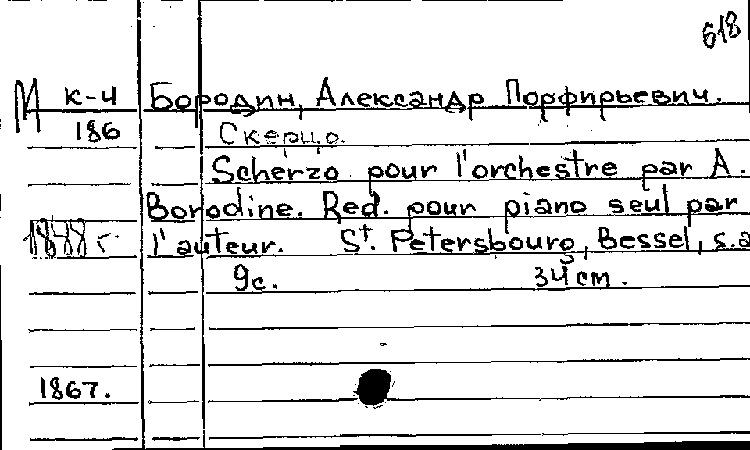 618
М к-4 Бородин, Александр Порфирьевич.
186 Скерцо.
Scherzo pour l'orchestre par A.
Borodine. Red. pour piano seul par
l'auteur. St. Petersbourg, Bessel, s.a
9с. 34 cm.
1867.